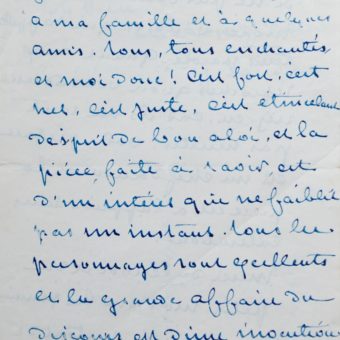 à ma famille et à quelques
amis. Tous, tous enchantés
et moi donc ! C'est fort, c'est
net, c'est juste, c'est étincelant
d'esprit de bon aloi, et la
pièce, faite à ravir, est
d'un intérêt qui ne faiblit
pas un instant. Tous les
personnages sont excellents
et la grande affaire du
discours est d'une